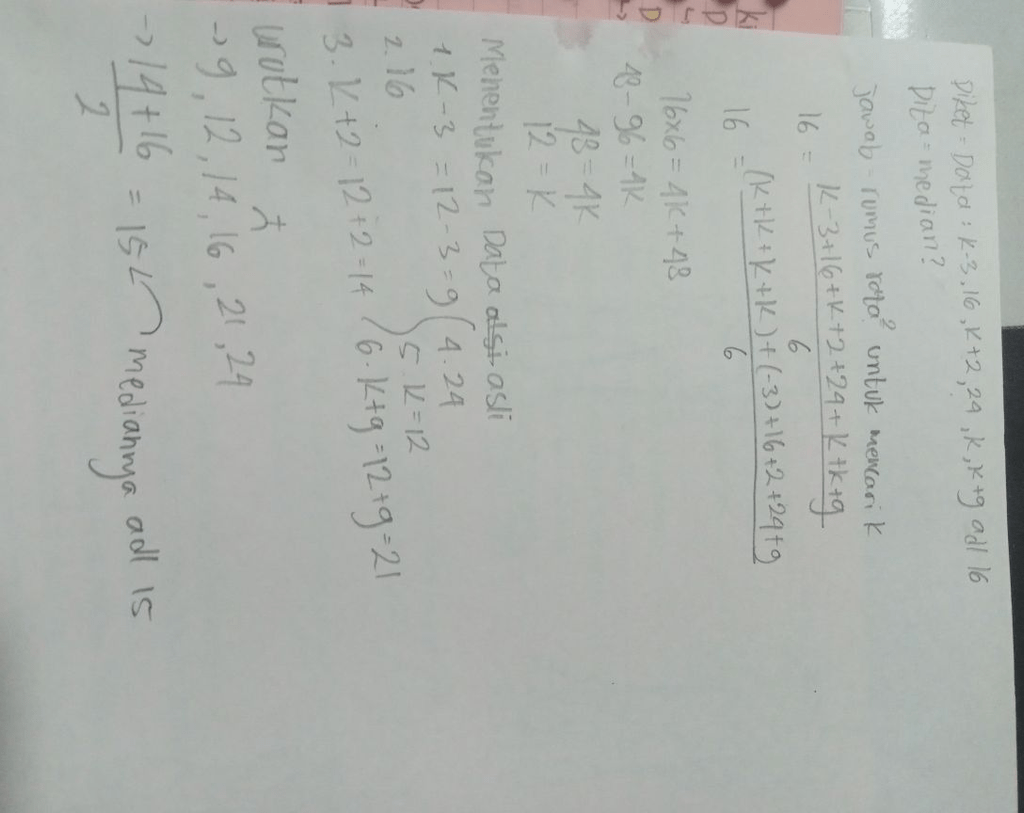 Diket = Data : k-3, 16, k+2, 24, k, k+9 adl 16
Dita = median?
jawab = rumus rata² untuk mencari k
16 = k-3+16+k+2+24+k+k+9
6
16 = (k+k+k+k)+(-3)+16+2+24+9
6
16×6 = 4k+48
48-96 = 4k
48 = 4k
12 = k
Menentukan Data asli
1. k-3 = 12-3 = 9
2. 16
3. k+2 = 12+2 = 14
4. 24
5. k = 12
6. k+9 = 12+9 = 21
urutkan
→ 9, 12, 14, 16, 21, 24
→ 14+16 = 15 mediannya adl 15
2